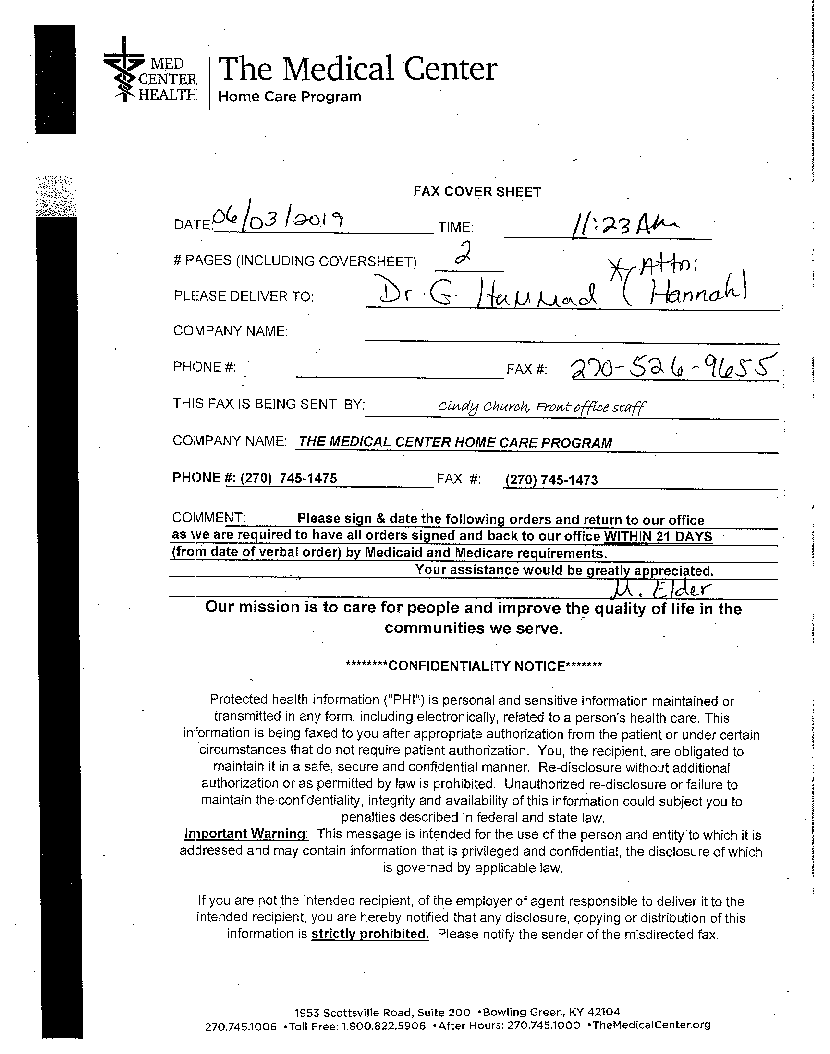 MED
CENTER
HEALTH
The Medical Center
Home Care Program
FAX COVER SHEET
DATE: 06/03/2019 TIME: 11:23 AM
# PAGES (INCLUDING COVERSHEET) 2
* Attn:
PLEASE DELIVER TO: Dr. G. Hammad (Hannah)
COMPANY NAME:
PHONE #: FAX #: 270-526-9655
THIS FAX IS BEING SENT BY: Cindy Church, Front office staff
COMPANY NAME: THE MEDICAL CENTER HOME CARE PROGRAM
PHONE #: (270) 745-1475 FAX #: (270) 745-1473
COMMENT: Please sign & date the following orders and return to our office
as we are required to have all orders signed and back to our office WITHIN 21 DAYS
(from date of verbal order) by Medicaid and Medicare requirements.
Your assistance would be greatly appreciated.
M. Elder
Our mission is to care for people and improve the quality of life in the
communities we serve.
********CONFIDENTIALITY NOTICE*******
Protected health information ("PHI") is personal and sensitive information maintained or
transmitted in any form, including electronically, related to a person's health care. This
information is being faxed to you after appropriate authorization from the patient or under certain
circumstances that do not require patient authorization. You, the recipient, are obligated to
maintain it in a safe, secure and confidential manner. Re-disclosure without additional
authorization or as permitted by law is prohibited. Unauthorized re-disclosure or failure to
maintain the confidentiality, integrity and availability of this information could subject you to
penalties described in federal and state law.
Important Warning: This message is intended for the use of the person and entity to which it is
addressed and may contain information that is privileged and confidential, the disclosure of which
is governed by applicable law.
If you are not the intended recipient, of the employer of agent responsible to deliver it to the
intended recipient, you are hereby notified that any disclosure, copying or distribution of this
information is strictly prohibited. Please notify the sender of the misdirected fax.
1953 Scottsville Road, Suite 200 •Bowling Green, KY 42104
270.745.1006 •Toll Free: 1.800.822.5906 •After Hours: 270.745.1000 •TheMedicalCenter.org